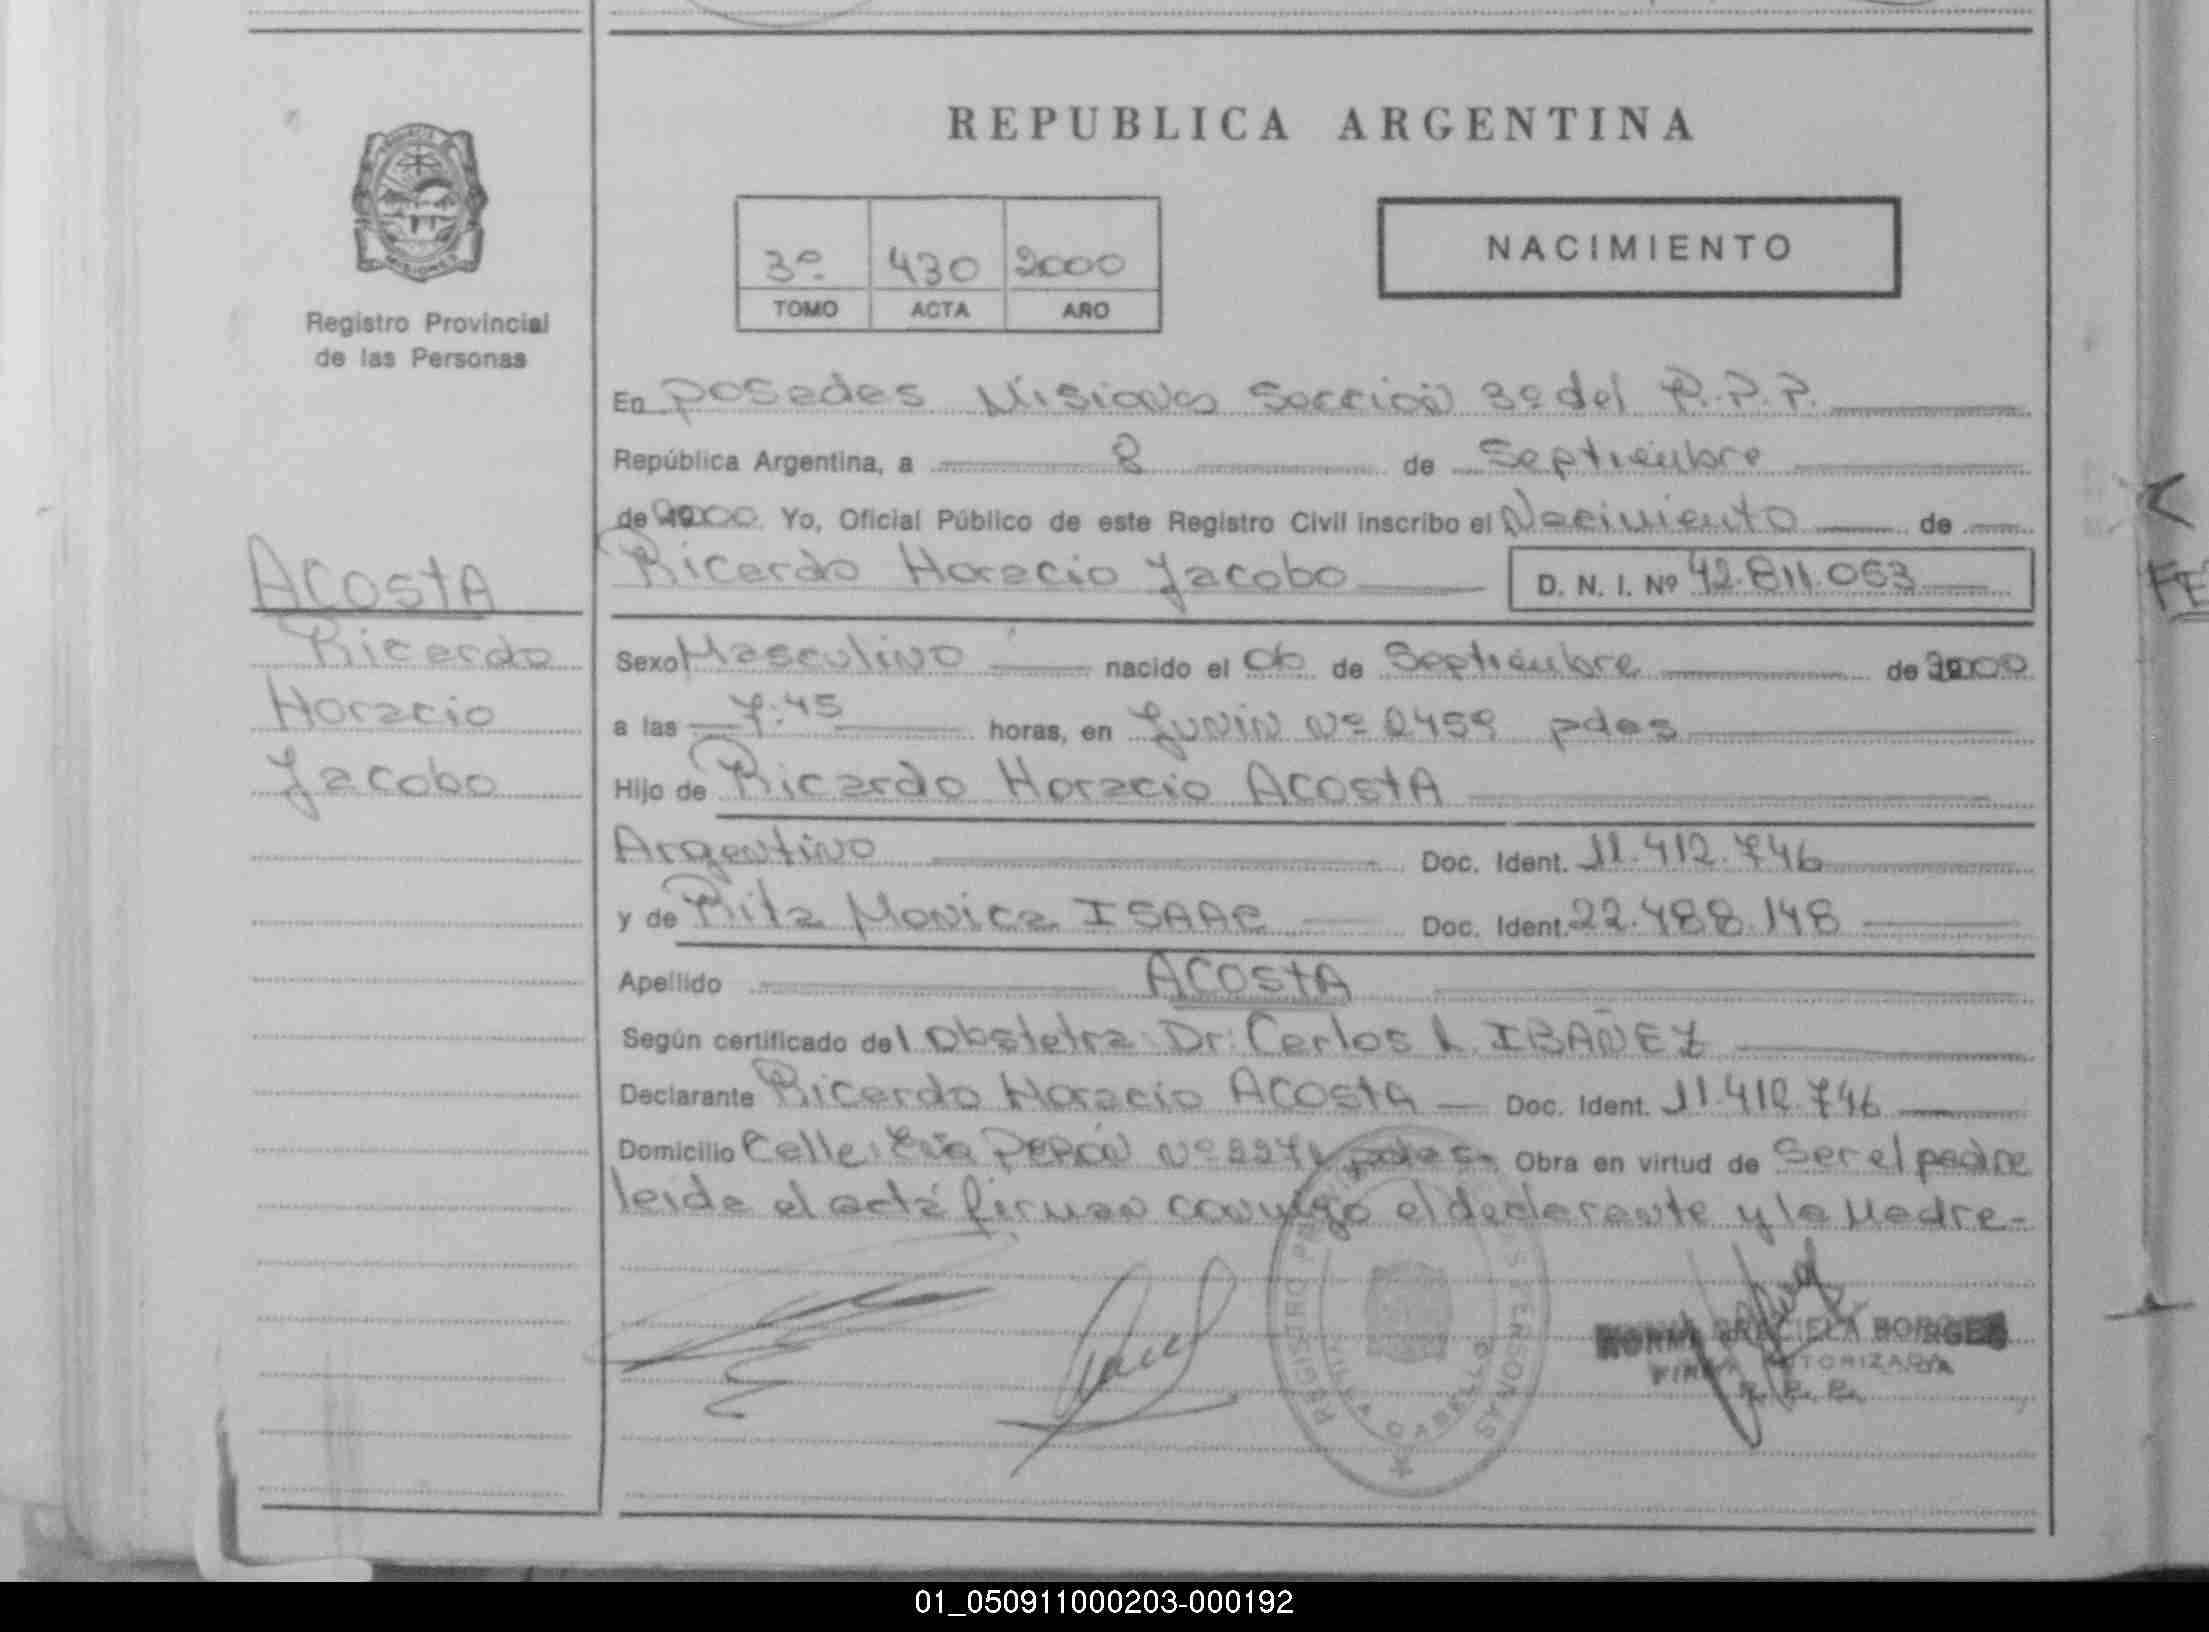 REPUBLICA ARGENTINA
MISIONES
Registro Provincial
de las Personas
3º 430 2000
TOMO ACTA AÑO
NACIMIENTO
En Posadas Misiones Sección 3º del R.P.P.
República Argentina, a 8 de Septiembre
de 2000 Yo, Oficial Público de este Registro Civil inscribo el Nacimiento de
Ricardo Horacio Jacobo D. N. I. Nº 42.811.053
ACOSTA
Ricardo
Horacio
Jacobo
Sexo Masculino nacido el 06 de Septiembre de 2000
a las 7:45 horas, en Junín Nº 2459 pdas
Hijo de Ricardo Horacio ACOSTA
Argentino Doc. Ident. 11.412.746
y de Rita Monica ISAAC Doc. Ident. 22.488.148
Apellido ACOSTA
Según certificado del Obstetra Dr: Carlos L. IBAÑEZ
Declarante Ricardo Horacio ACOSTA Doc. Ident. 11.412.746
Domicilio Calle: Eva PERÓN Nº pdas- Obra en virtud de Ser el padre
leida el acta firman conmigo el declarante y la Madre-
REGISTRO PERSONAS
GRACIELA BORGES
FIRMA AUTORIZADA
R. P. P.
01_050911000203-000192